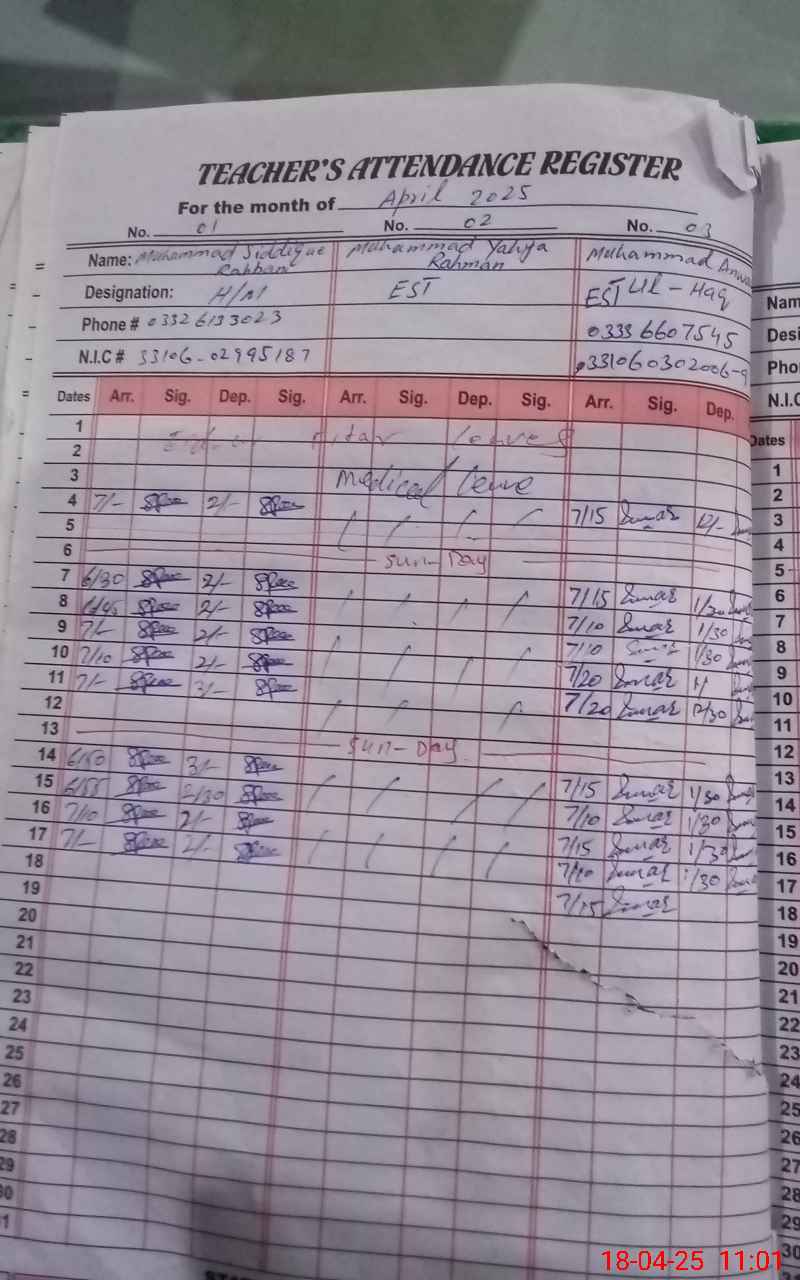 TEACHER'S ATTENDANCE REGISTER
For the month of April 2025
No. 01 No. 02 No. 03
Name: Muhammad Siddique Rabbani Muhammad Yahya Rahman Muhammad Anwa Ul-Haq
Designation: H/M EST EST
Phone # 0332 6133023 0333 6607545
N.I.C # 33106-02995187 331060302006-9
Dates Arr. Sig. Dep. Sig. Arr. Sig. Dep. Sig. Arr. Sig. Dep.
1
2 leaves
3 Medical Leave
4 7/- 2/- 7/15 12/-
5
6 Sun-Day
7 6/30 2/- 7/15 1/30
8 6/45 2/- 7/10 1/30
9 7/- 2/- 7/10 1/30
10 7/10 2/- 7/20
11 7/- 3/- 7/20 12/30
12
13 Sun-Day
14 6/50 3/- 7/15 1/30
15 6/55 2/30 7/10 1/30
16 7/10 2/- 7/15 1/30
17 7/- 2/- 7/10 1/30
18 7/15
19
20
21
22
23
24
25
26
27
28
29
30
31
Nam
Desi
Pho
N.I.C
Dates
1
2
3
4
5
6
7
8
9
10
11
12
13
14
15
16
17
18
20
21
22
23
24
25
26
27
28
29
30
18-04-25 11:01